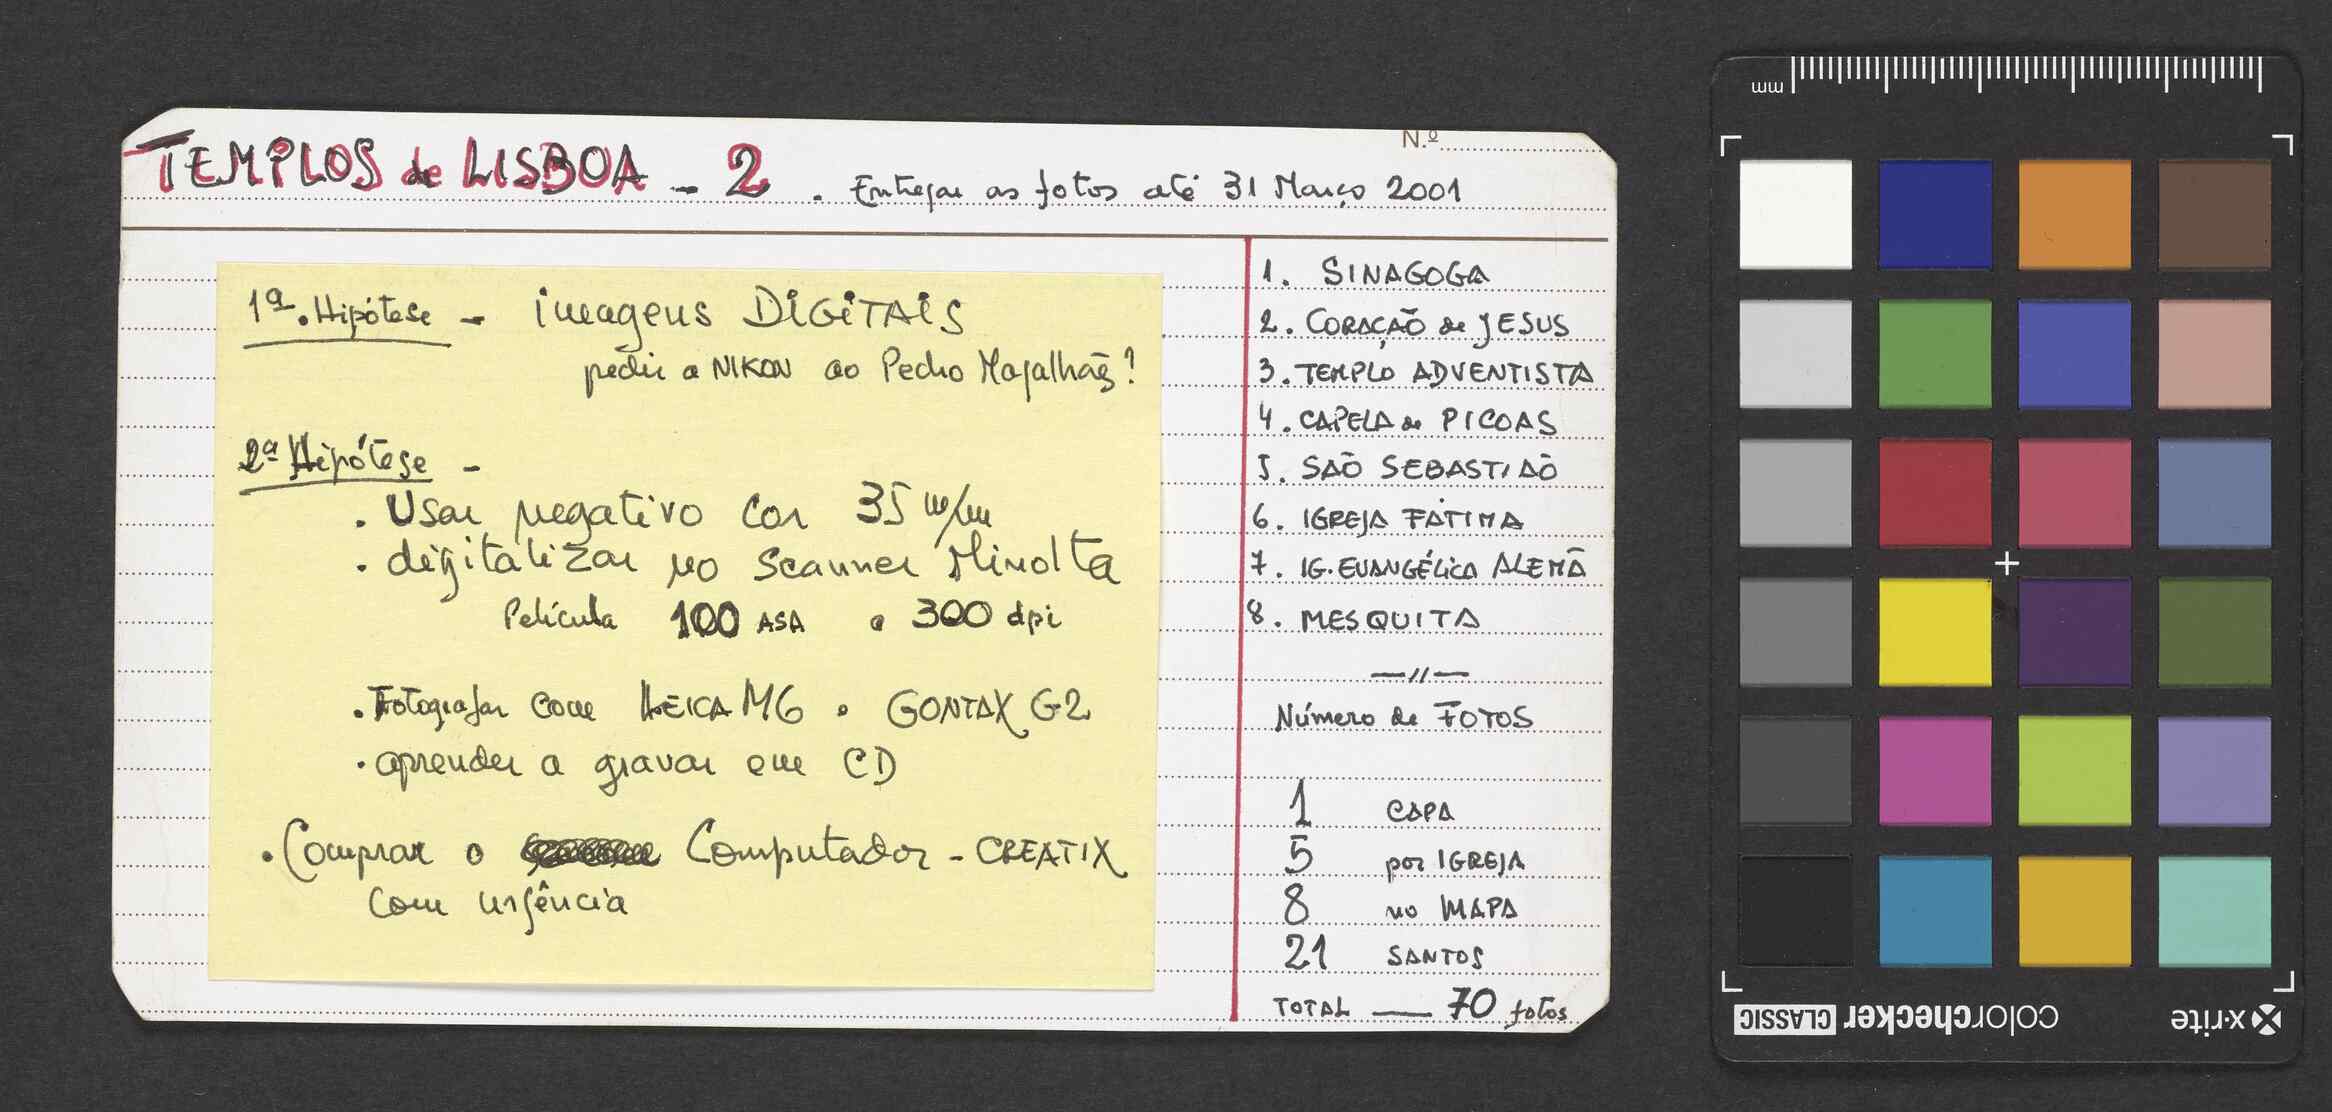 N.º
TEMPLOS de LISBOA - 2 . Entregar as fotos até 31 Março 2001
1ª. Hipótese - imagens DIGITAIS
pedir a NIKON ao Pedro Magalhães?
2ª Hipótese -
. Usar negativo cor 35 m/m
. digitalizar no scanner Minolta
Película 100 ASA a 300 dpi
. Fotografar com LEICA M6 e CONTAX G2
. aprender a gravar em CD
. Comprar o Computador - CREATIX
com urgência
1. SINAGOGA
2. CORAÇÃO de JESUS
3. TEMPLO ADVENTISTA
4. CAPELA de PICOAS
5. SÃO SEBASTIÃO
6. IGREJA FÁTIMA
7. IG. EVANGÉLICA ALEMÃ
8. MESQUITA
—//—
Número de FOTOS
1 CAPA
5 por IGREJA
8 no MAPA
21 SANTOS
TOTAL — 70 fotos
mm
x-rite colorchecker CLASSIC